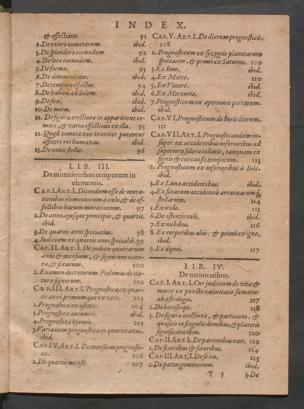 INDEX.
& effectione. 91
2. De colore cometarum. ibid.
3. De splendore eorundem. 92
4. De loco eorundem. ibid.
5. De forma. 93
6. De diuturnitate. ibid.
7. De tempore effectus. ibid.
8. De habitu ad Solem. ibid.
9. De situ. ibid.
10. De motu. ibid.
11. De signi erectione in apparitione cometæ, & varia effectione ex illa. 95
12. Quid cometa novi inter putantur
afferre rebus humanis. ibid.
13. De novis stellis. 96
LIB. III.
De mutationibus temporum in
elementis.
CAP. I. ART. I. Dicendum esse de mutationibus
elementorum à cœlo, & de effectibus
harum mutationum. 97
2. De anno, ejusque principio, & quartis.
ibid.
3. De quartis anni speciatim. 98
4. Judicium ex quartis anni speciale. 99
CAP. II. ART. I. De judicio quartarum
anni & mensium, & signorum natura,
& fixarum. 100
2. Examen decretorum Ptolemæi de natura
signorum. 102
CAP. III. ART. I. Prognostica ex quartis
anni, primumque ex vere. 103
2. Prognostica ex æstate. 104
3. Prognostica autumni. ibid.
4. Prognostica hyemis. 105
5. Variatorum prognostica in quartis anni.
ibid.
CAP. IV. ART. I. De mensium prognosticis.
106
2. De quartis mensis. 107
CAP. V. ART. I. De dierum prognosticis.
108
2. Prognosticum ex syzygiis planetarum
speciatim, & primo ex Saturno. 109
3. Ex Jove. ibid.
4. Ex Marte. 110
5. Ex Venere. ibid.
6. Ex Mercurio. ibid.
7. Prognosticum ex apertione portarum.
ibid.
CAP. VI. Prognosticum de horis dierum.
111
CAP. VII. ART. I. Prognosticandum insuper
ex accidentibus inferioribus ad
superiora sidera collatis, tanquam ex
signis & concausis temporum. 113
2. Prognosticum ex inferioribus à Sole.
ibid.
3. Ex Lunæ accidentibus. ibid.
4. Ex fixarum accidentiis
stellarum. 114
5. Ex iride. 115
6. De ostentis cœli. ibid.
7. Ex nubibus. 116
8. Ex corporibus aliis: & primo ex igne.
ibid.
9. Ex aquis. 117
LIB. IV.
De nativitatibus.
CAP. I. ART. I. Cur judicium de vita &
morte ex puncto nativitatis sumatur
ab astrologis. 117
2. De horoscopo. 118
3. De signi erectione, & partitione, &
quæsitis in singulis domibus, & planetis
significatoribus. 120
CAP. II. ART. I. De parentibus nati. 122
2. De fratribus & sororibus. 124
CAP. III. ART. I. De sexu. 125
2. De partu gemellorum. ibid.
3. De